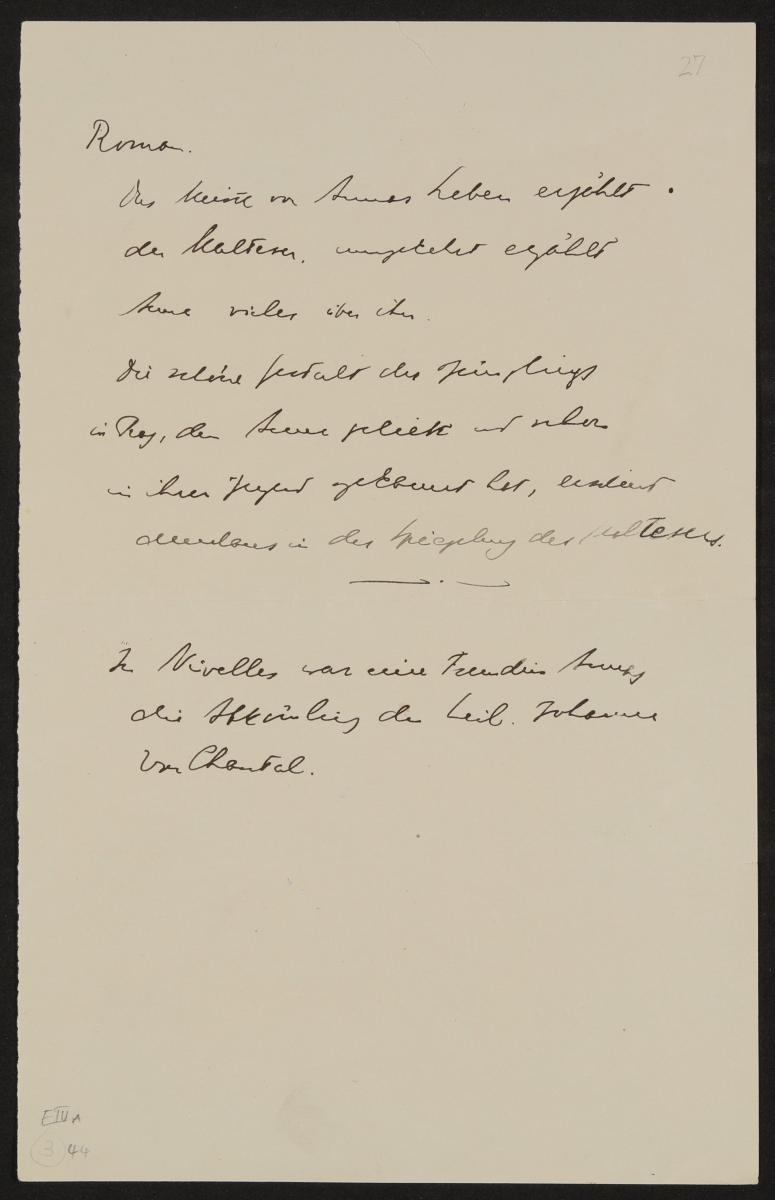 27
Roman.
Das meiste von Annas Leben erzählt
der Malteser, umgekehrt erzählt
Anna vieles über ihn.
Die schöne Gestalt des Jünglings
in Prag, den Anna geliebt und schon
in ihrer Jugend gekannt hat, erscheint
in der Spiegelung des Maltesers.
In Nivelles war eine Freundin Annas
die Abkömling der heil. Johanna
von Chantal.
EIVA
3 44